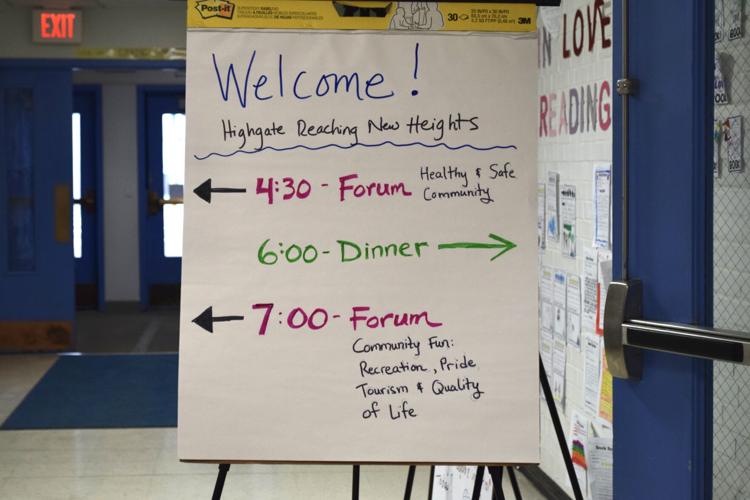 EXIT
Post-it
30
3M
Welcome!
Highgate Reaching New Heights
4:30 - Forum Healthy & Safe
Community
6:00 - Dinner
7:00 - Forum
Community Fun:
Recreation, Pride
Tourism & Quality
of Life
IN LOVE
READING